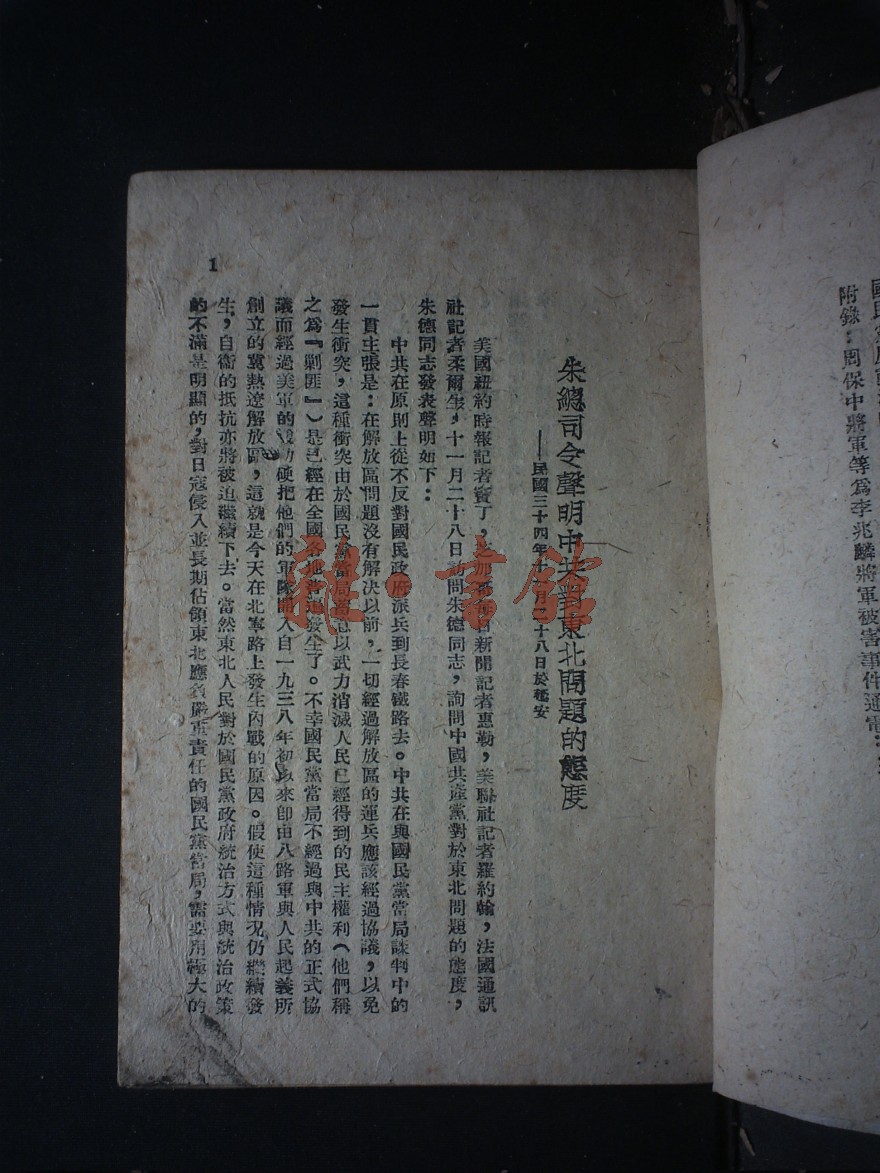 附錄：周保中將軍等爲李兆麟將軍被害事件通電
朱總司令聲明中共對東北問題的態度
——民國三十四年十一月二十八日於延安
美國紐約時報記者竇丁，芝加哥每日新聞記者惠勒，美聯社記者羅約翰，法國通訊
社記者柔爾生，十一月二十八日訪問朱德同志，詢問中國共產黨對於東北問題的態度，
朱德同志發表聲明如下：
中共在原則上從不反對國民政府派兵到長春鐵路去。中共在與國民黨當局談判中的
一貫主張是：在解放區問題沒有解決以前，一切經過解放區的運兵應該經過協議，以免
發生衝突，這種衝突由於國民黨當局蓄意以武力消滅人民已經得到的民主權利（他們稱
之爲『剿匪』）是已經在全國各地普遍發生了。不幸國民黨當局不經過與中共的正式協
議而經過美軍的援助硬把他們的軍隊開入自一九三八年初以來卽由八路軍與人民起義所
創立的冀熱遼解放區，這就是今天在北寧路上發生內戰的原因。假使這種情况仍繼續發
生，自衛的抵抗亦將被迫繼續下去。當然東北人民對於國民黨政府統治方式與統治政策
的不滿是明顯的，對日寇侵入並長期佔領東北應負嚴重責任的國民黨當局，需要用極大的
1
龍·書館